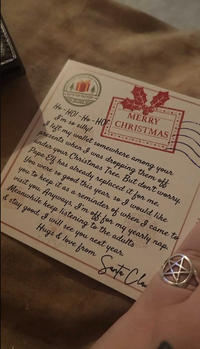 MERRY
CHRISTMAS
Ho-HO!-Ho-HO!
I'm so silly!
I left my wallet somewhere among your
presents when I was dropping them off
under your Christmas Tree. But don't worry,
Papa Elf has already replaced it for me.
You were so good this year, so I would like
you to keep it as a reminder of when I came to
visit you. Anyways, I'm off for my yearly nap.
Meanwhile keep listening to the adults
& stay good, I will see you next year.
Hugs & love from
Santa